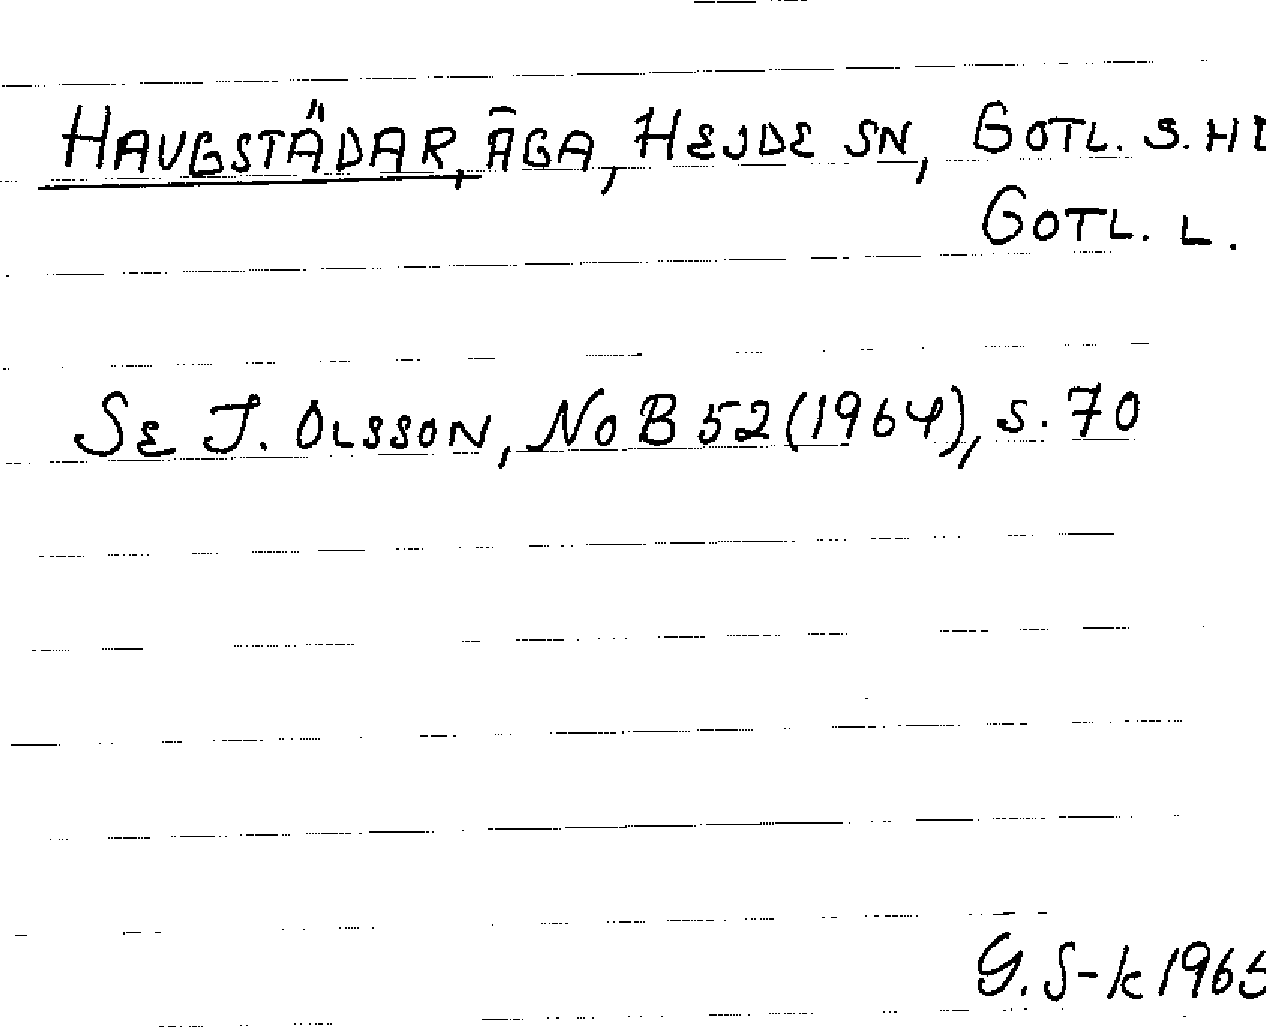 HAUGSTÄDAR, ÄGA, HEJDE SN, GOTL. S. HD
GOTL. L.
SE J. OLSSON, NOB 52 (1964), S. 70
G. S-k 1965